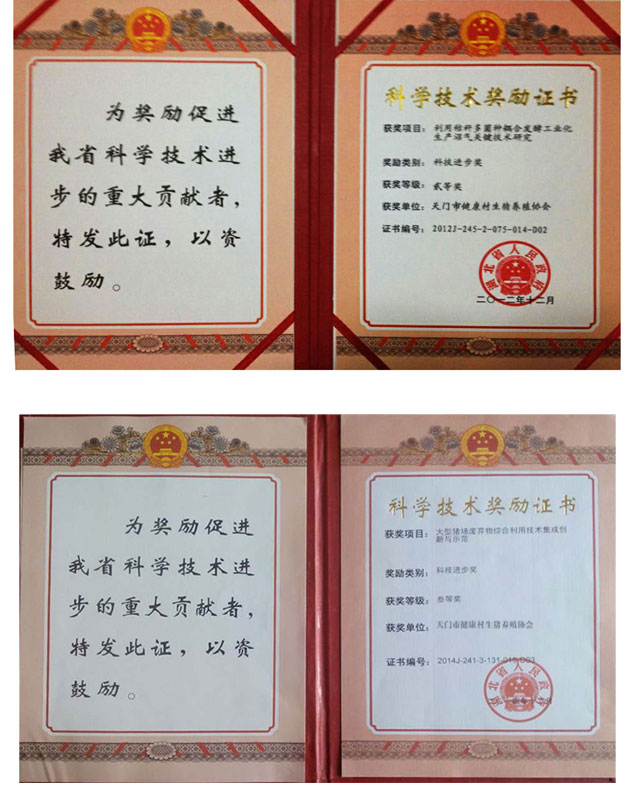 为奖励促进
我省科学技术进
步的重大贡献者，
特发此证，以资
鼓励。
科学技术奖励证书
获奖项目：利用秸秆多菌种耦合发酵工业化
生产沼气关键技术研究
奖励类别：科技进步奖
获奖等级：贰等奖
获奖单位：天门市健康村生猪养殖协会
证书编号：2012J-245-2-075-014-D02
湖北省人民政府
二〇一二年十二月
为奖励促进
我省科学技术进
步的重大贡献者，
特发此证，以资
鼓励。
科学技术奖励证书
获奖项目：大型猪场废弃物综合利用技术集成创
新与示范
奖励类别：科技进步奖
获奖等级：叁等奖
获奖单位：天门市健康村生猪养殖协会
证书编号：2014J-241-3-131-015-D03
湖北省人民政府